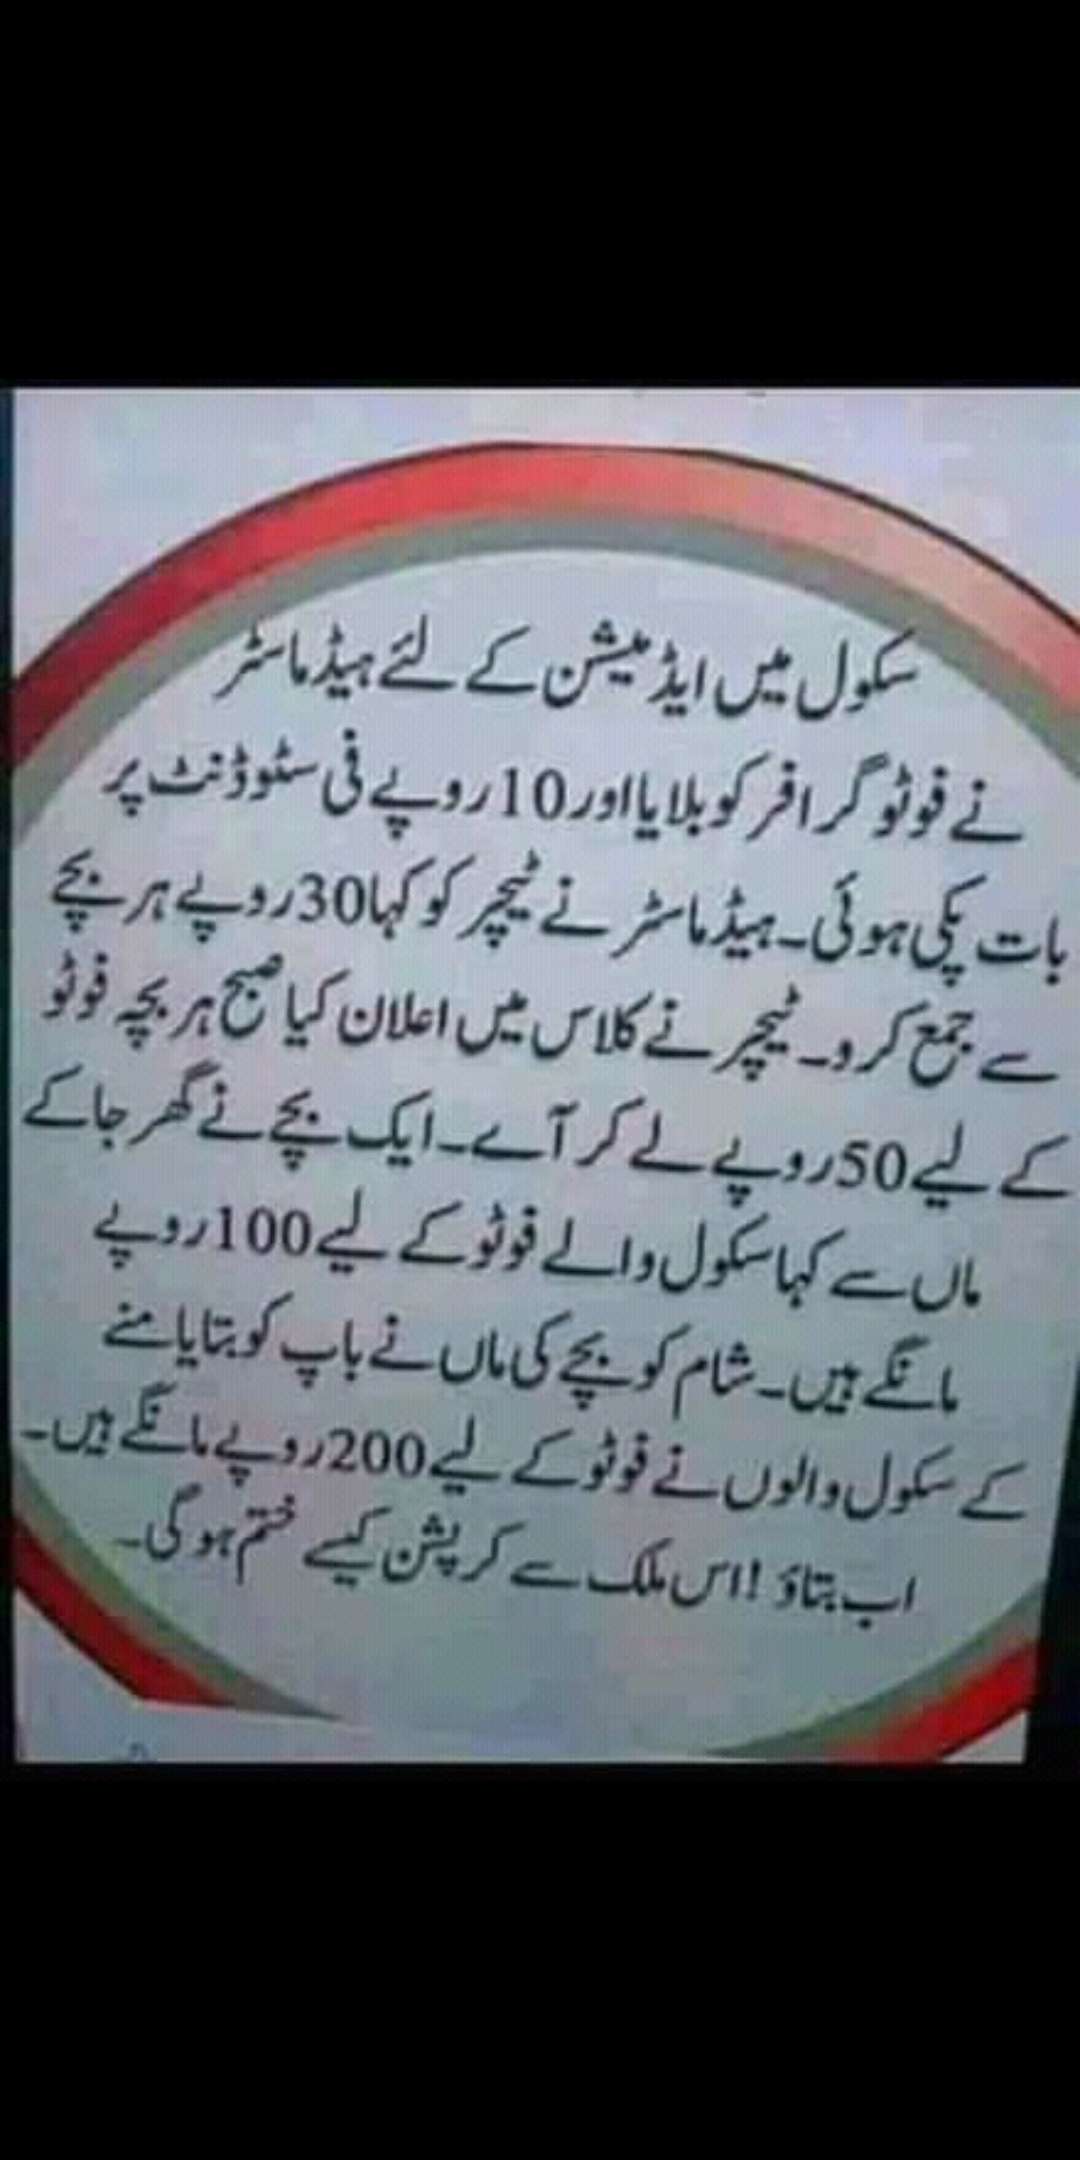 سکول میں ایڈمیشن کے لئے ہیڈماسٹر
نے فوٹوگرافر کو بلایا اور 10 روپے فی سٹوڈنٹ پر
بات پکی ہوئی۔ ہیڈماسٹر نے ٹیچر کو کہا 30 روپے ہر بچے
سے جمع کرو۔ ٹیچر نے کلاس میں اعلان کیا صبح ہر بچہ فوٹو
کے لیے 50 روپے لے کر آے۔ ایک بچے نے گھر جا کے
ماں سے کہا سکول والے فوٹو کے لیے 100 روپے
مانگے ہیں۔ شام کو بچے کی ماں نے باپ کو بتایا منے
کے سکول والوں نے فوٹو کے لیے 200 روپے مانگے ہیں۔
اب بتاؤ !اس ملک سے کرپشن کیسے ختم ہو گی۔